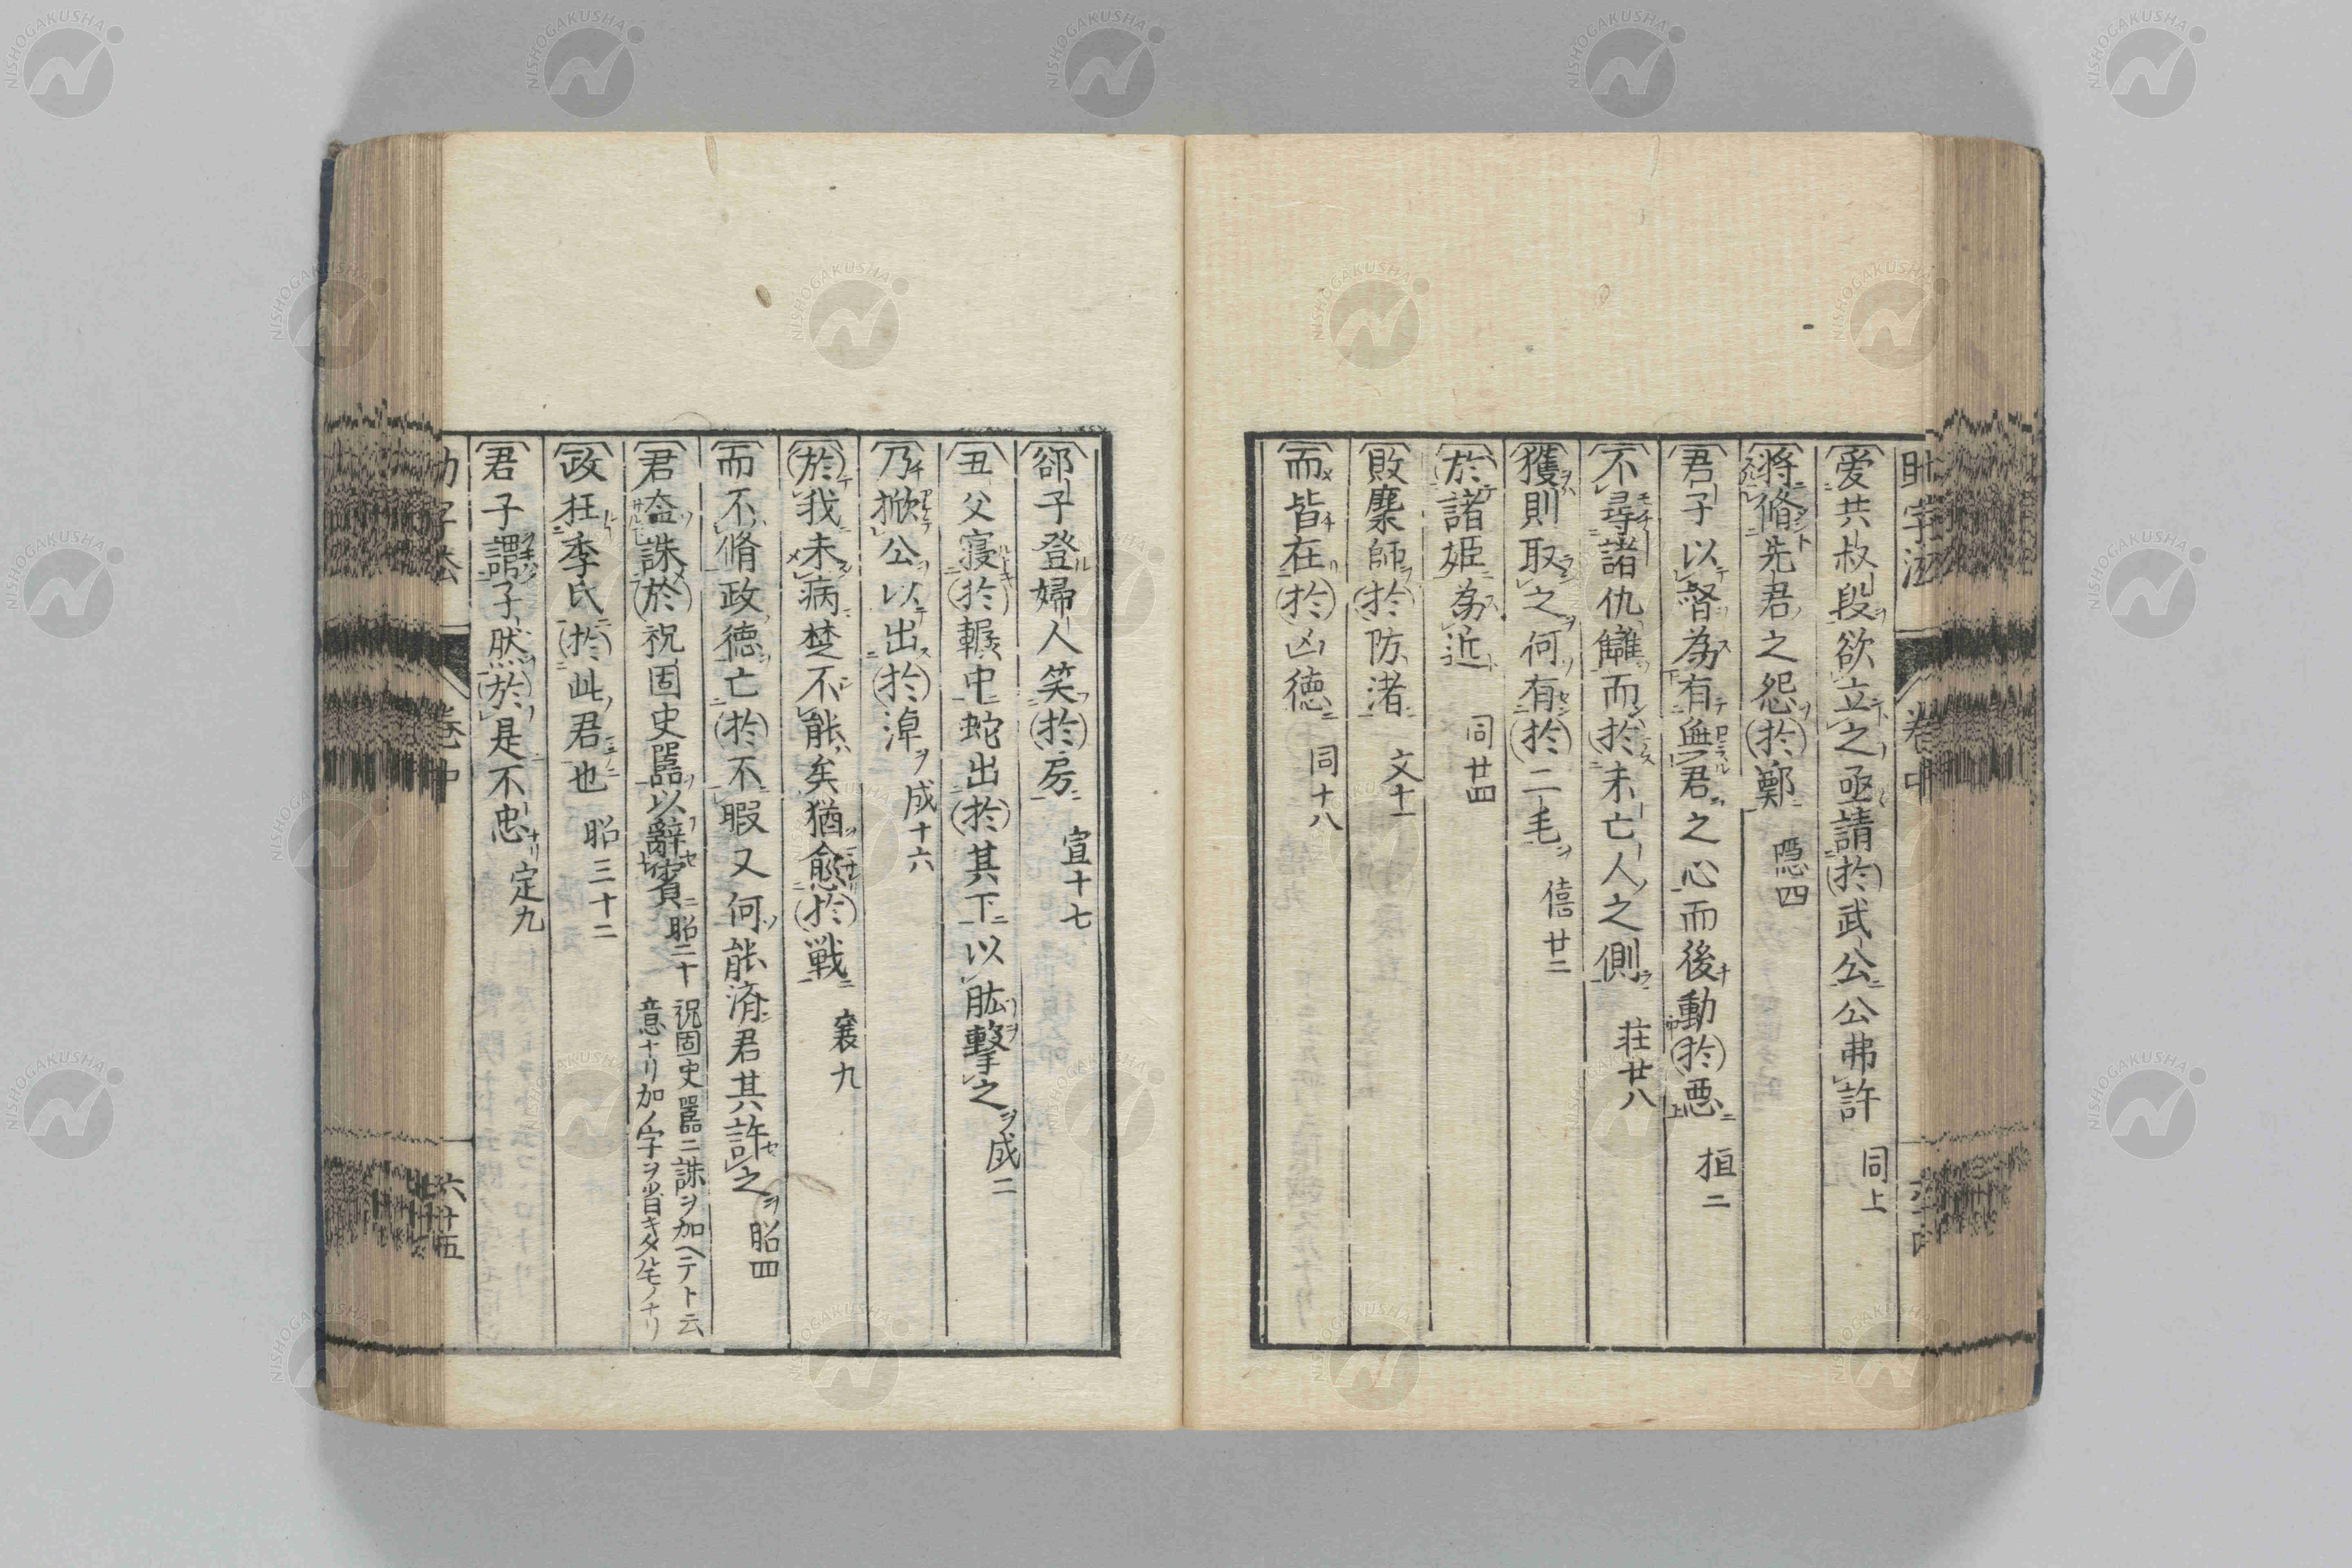 愛共叔段欲立之亟請於武公公弗許 同上
將脩先君之怨於鄭 隱四
君子以督為有無君之心而後動於惡 桓二
不尋諸仇讎而於未亡人之側 莊廿八
獲則取之何有於二毛 僖廿二
於諸姬為近 同廿四
敗麇師於防渚 文十一
而皆在於凶德 同十八
郤子登婦人笑於房 宣十七
丑父寢於轏中蛇出於其下以肱擊之 成二
乃掀公以出於淖 成十六
於我未病楚不能矣猶愈於戰 襄九
而不脩政德亡於不暇又何能濟君其許之 昭四
君盍誅於祝固史嚚以辭賓 昭二十 祝固史嚚ニ誅ヲ加ヘテト云
意ナリ加ノ字ヲ省キタルモノナリ
政在季氏於此君也 昭三十二
君子謂子然於是不忠 定九
卷中
六十五
NISHOGAKUSHA